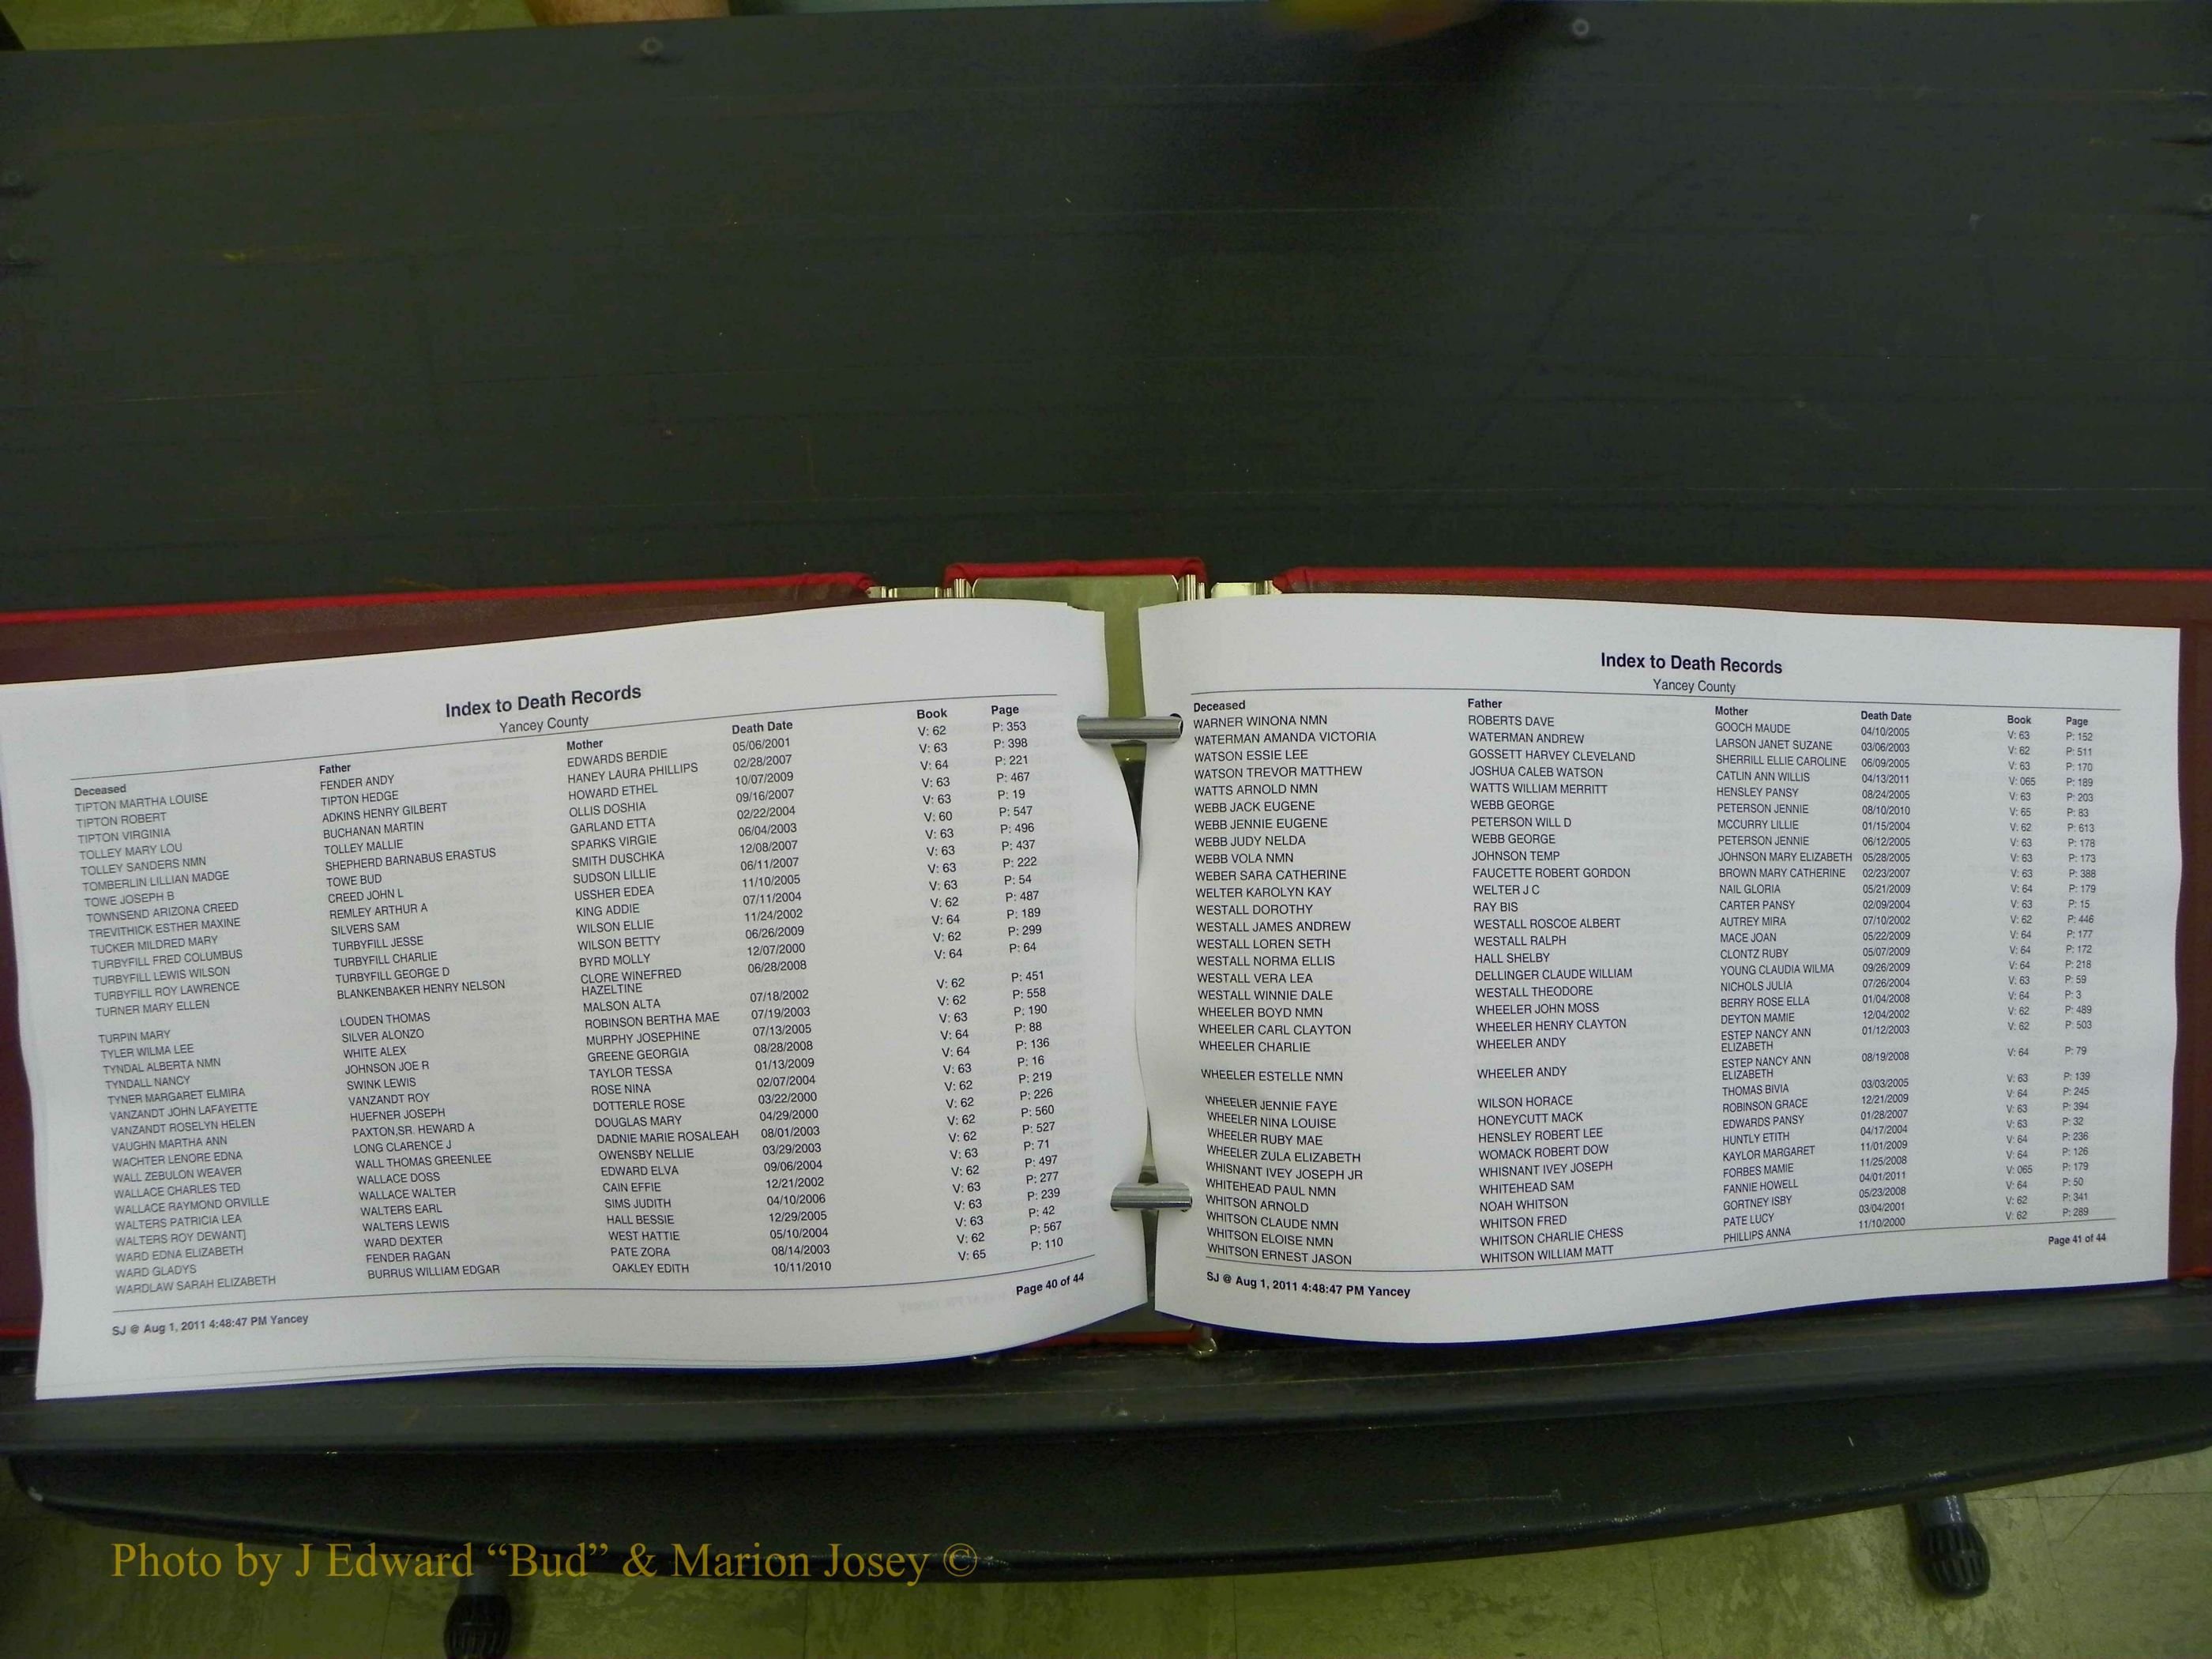 Index to Death Records
Yancey County
Deceased Father Mother Death Date Book Page
TIPTON MARTHA LOUISE FENDER ANDY EDWARDS BERDIE 05/06/2001 V: 62 P: 353
TIPTON ROBERT TIPTON HEDGE HANEY LAURA PHILLIPS 02/28/2007 V: 63 P: 398
TIPTON VIRGINIA ADKINS HENRY GILBERT HOWARD ETHEL 10/07/2009 V: 64 P: 221
TOLLEY MARY LOU BUCHANAN MARTIN OLLIS DOSHIA 09/16/2007 V: 63 P: 467
TOLLEY SANDERS NMN TOLLEY MALLIE GARLAND ETTA 02/22/2004 V: 63 P: 19
TOMBERLIN LILLIAN MADGE SHEPHERD BARNABUS ERASTUS SPARKS VIRGIE 06/04/2003 V: 60 P: 547
TOWE JOSEPH B TOWE BUD SMITH DUSCHKA 12/08/2007 V: 63 P: 496
TOWNSEND ARIZONA CREED CREED JOHN L SUDSON LILLIE 06/11/2007 V: 63 P: 437
TREVITHICK ESTHER MAXINE REMLEY ARTHUR A USSHER EDEA 11/10/2005 V: 63 P: 222
TUCKER MILDRED MARY SILVERS SAM KING ADDIE 07/11/2004 V: 63 P: 54
TURBYFILL FRED COLUMBUS TURBYFILL JESSE WILSON ELLIE 11/24/2002 V: 62 P: 487
TURBYFILL LEWIS WILSON TURBYFILL CHARLIE WILSON BETTY 06/26/2009 V: 64 P: 189
TURBYFILL ROY LAWRENCE TURBYFILL GEORGE D BYRD MOLLY 12/07/2000 V: 62 P: 299
TURNER MARY ELLEN BLANKENBAKER HENRY NELSON CLORE WINEFRED 06/28/2008 V: 64 P: 64
HAZELTINE
TURPIN MARY LOUDEN THOMAS MALSON ALTA 07/18/2002 V: 62 P: 451
TYLER WILMA LEE SILVER ALONZO ROBINSON BERTHA MAE 07/19/2003 V: 62 P: 558
TYNDAL ALBERTA NMN WHITE ALEX MURPHY JOSEPHINE 07/13/2005 V: 63 P: 190
TYNDALL NANCY JOHNSON JOE R GREENE GEORGIA 08/28/2008 V: 64 P: 88
TYNER MARGARET ELMIRA SWINK LEWIS TAYLOR TESSA 01/13/2009 V: 64 P: 136
VANZANDT JOHN LAFAYETTE VANZANDT ROY ROSE NINA 02/07/2004 V: 63 P: 16
VANZANDT ROSELYN HELEN HUEFNER JOSEPH DOTTERLE ROSE 03/22/2000 V: 62 P: 219
VAUGHN MARTHA ANN PAXTON,SR. HEWARD A DOUGLAS MARY 04/29/2000 V: 62 P: 226
WACHTER LENORE EDNA LONG CLARENCE J DADNIE MARIE ROSALEAH 08/01/2003 V: 62 P: 560
WALL ZEBULON WEAVER WALL THOMAS GREENLEE OWENSBY NELLIE 03/29/2003 V: 62 P: 527
WALLACE CHARLES TED WALLACE DOSS EDWARD ELVA 09/06/2004 V: 63 P: 71
WALLACE RAYMOND ORVILLE WALLACE WALTER CAIN EFFIE 12/21/2002 V: 62 P: 497
WALTERS PATRICIA LEA WALTERS EARL SIMS JUDITH 04/10/2006 V: 63 P: 277
WALTERS ROY DEWANT] WALTERS LEWIS HALL BESSIE 12/29/2005 V: 63 P: 239
WARD EDNA ELIZABETH WARD DEXTER WEST HATTIE 05/10/2004 V: 63 P: 42
WARD GLADYS FENDER RAGAN PATE ZORA 08/14/2003 V: 62 P: 567
WARDLAW SARAH ELIZABETH BURRUS WILLIAM EDGAR OAKLEY EDITH 10/11/2010 V: 65 P: 110
Page 40 of 44
SJ @ Aug 1, 2011 4:48:47 PM Yancey
Index to Death Records
Yancey County
Deceased Father Mother Death Date Book Page
WARNER WINONA NMN ROBERTS DAVE GOOCH MAUDE 04/10/2005 V: 63 P: 152
WATERMAN AMANDA VICTORIA WATERMAN ANDREW LARSON JANET SUZANE 03/06/2003 V: 62 P: 511
WATSON ESSIE LEE GOSSETT HARVEY CLEVELAND SHERRILL ELLIE CAROLINE 06/09/2005 V: 63 P: 170
WATSON TREVOR MATTHEW JOSHUA CALEB WATSON CATLIN ANN WILLIS 04/13/2011 V: 065 P: 189
WATTS ARNOLD NMN WATTS WILLIAM MERRITT HENSLEY PANSY 08/24/2005 V: 63 P: 203
WEBB JACK EUGENE WEBB GEORGE PETERSON JENNIE 08/10/2010 V: 65 P: 83
WEBB JENNIE EUGENE PETERSON WILL D MCCURRY LILLIE 01/15/2004 V: 62 P: 613
WEBB JUDY NELDA WEBB GEORGE PETERSON JENNIE 06/12/2005 V: 63 P: 178
WEBB VOLA NMN JOHNSON TEMP JOHNSON MARY ELIZABETH 05/28/2005 V: 63 P: 173
WEBER SARA CATHERINE FAUCETTE ROBERT GORDON BROWN MARY CATHERINE 02/23/2007 V: 63 P: 388
WELTER KAROLYN KAY WELTER J C NAIL GLORIA 05/21/2009 V: 64 P: 179
WESTALL DOROTHY RAY BIS CARTER PANSY 02/09/2004 V: 63 P: 15
WESTALL JAMES ANDREW WESTALL ROSCOE ALBERT AUTREY MIRA 07/10/2002 V: 62 P: 446
WESTALL LOREN SETH WESTALL RALPH MACE JOAN 05/22/2009 V: 64 P: 177
WESTALL NORMA ELLIS HALL SHELBY CLONTZ RUBY 05/07/2009 V: 64 P: 172
WESTALL VERA LEA DELLINGER CLAUDE WILLIAM YOUNG CLAUDIA WILMA 09/26/2009 V: 64 P: 218
WESTALL WINNIE DALE WESTALL THEODORE NICHOLS JULIA 07/26/2004 V: 63 P: 59
WHEELER BOYD NMN WHEELER JOHN MOSS BERRY ROSE ELLA 01/04/2008 V: 64 P: 3
WHEELER CARL CLAYTON WHEELER HENRY CLAYTON DEYTON MAMIE 12/04/2002 V: 62 P: 489
WHEELER CHARLIE WHEELER ANDY ESTEP NANCY ANN 01/12/2003 V: 62 P: 503
ELIZABETH
WHEELER ESTELLE NMN WHEELER ANDY ESTEP NANCY ANN 08/19/2008 V: 64 P: 79
ELIZABETH
WHEELER JENNIE FAYE WILSON HORACE THOMAS BIVIA 03/03/2005 V: 63 P: 139
WHEELER NINA LOUISE HONEYCUTT MACK ROBINSON GRACE 12/21/2009 V: 64 P: 245
WHEELER RUBY MAE HENSLEY ROBERT LEE EDWARDS PANSY 01/28/2007 V: 63 P: 394
WHEELER ZULA ELIZABETH WOMACK ROBERT DOW HUNTLY ETITH 04/17/2004 V: 63 P: 32
WHISNANT IVEY JOSEPH JR WHISNANT IVEY JOSEPH KAYLOR MARGARET 11/01/2009 V: 64 P: 236
WHITEHEAD PAUL NMN WHITEHEAD SAM FORBES MAMIE 11/25/2008 V: 64 P: 126
WHITSON ARNOLD NOAH WHITSON FANNIE HOWELL 04/01/2011 V: 065 P: 179
WHITSON CLAUDE NMN WHITSON FRED GORTNEY ISBY 05/23/2008 V: 64 P: 50
WHITSON ELOISE NMN WHITSON CHARLIE CHESS PATE LUCY 03/04/2001 V: 62 P: 341
WHITSON ERNEST JASON WHITSON WILLIAM MATT PHILLIPS ANNA 11/10/2000 V: 62 P: 289
Page 41 of 44
SJ @ Aug 1, 2011 4:48:47 PM Yancey
Photo by J Edward “Bud” & Marion Josey ©